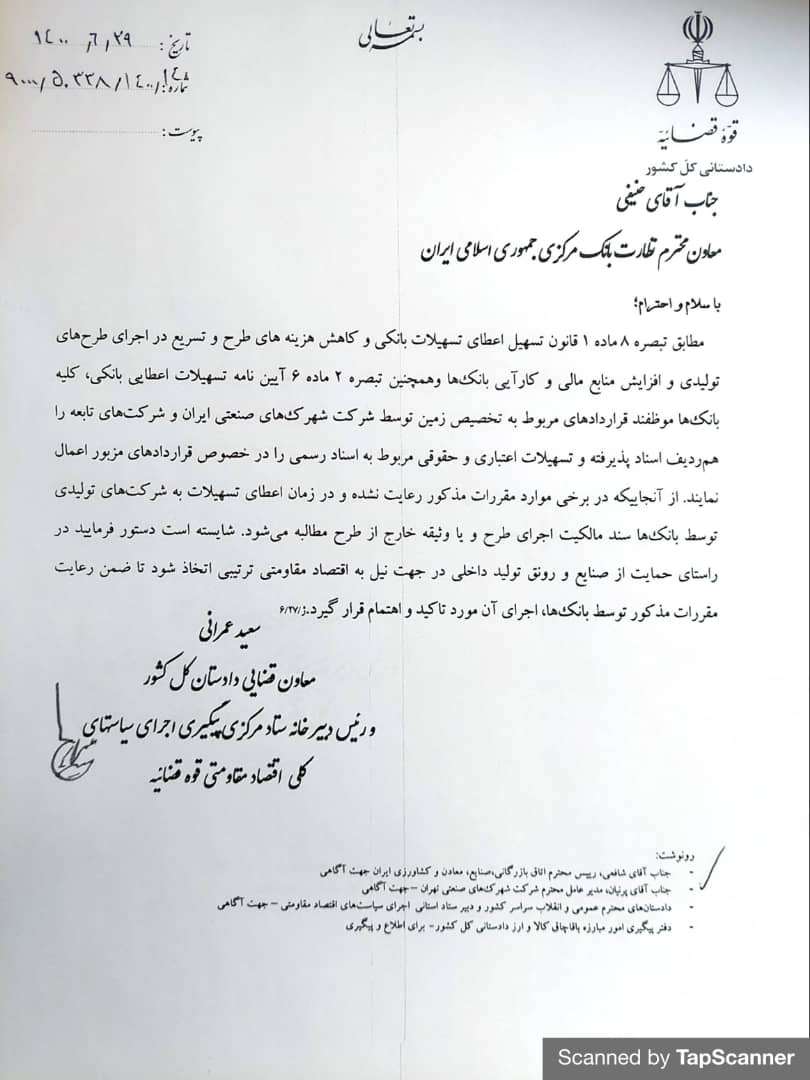 بسمه تعالی
تاریخ: ۱۴۰۰/۶/۲۹
شماره: ۹۰۰۰/۵۰۳۳۸/۱۴۰۰/۱۴۸
پیوست:
قوّهٔ قضـائیّه
دادستانی کلّ کشور
جناب آقای حنیفی
معاون محترم نظارت بانک مرکزی جمهوری اسلامی ایران
با سلام و احترام؛
مطابق تبصره ۸ ماده ۱ قانون تسهیل اعطای تسهیلات بانکی و کاهش هزینه های طرح و تسریع در اجرای طرح‌های
تولیدی و افزایش منابع مالی و کارآیی بانک‌ها وهمچنین تبصره ۲ ماده ۶ آیین نامه تسهیلات اعطایی بانکی، کلیه
بانک‌ها موظفند قراردادهای مربوط به تخصیص زمین توسط شرکت شهرک‌های صنعتی ایران و شرکت‌های تابعه را
هم‌ردیف اسناد پذیرفته و تسهیلات اعتباری و حقوقی مربوط به اسناد رسمی را در خصوص قراردادهای مزبور اعمال
نمایند. از آنجاییکه در برخی موارد مقررات مذکور رعایت نشده و در زمان اعطای تسهیلات به شرکت‌های تولیدی
توسط بانک‌ها سند مالکیت اجرای طرح و یا وثیقه خارج از طرح مطالبه می‌شود. شایسته است دستور فرمایید در
راستای حمایت از صنایع و رونق تولید داخلی در جهت نیل به اقتصاد مقاومتی ترتیبی اتخاذ شود تا ضمن رعایت
مقررات مذکور توسط بانک‌ها، اجرای آن مورد تاکید و اهتمام قرار گیرد.ز۶/۲۷/
سعید عمرانی
معاون قضایی دادستان کل کشور
و رئیس دبیرخانه ستاد مرکزی پیگیری اجرای سیاستهای
کلی اقتصاد مقاومتی قوه قضائیه
رونوشت:
- جناب آقای شافعی، رییس محترم اتاق بازرگانی،صنایع، معادن و کشاورزی ایران جهت آگاهی
- جناب آقای پرنیان، مدیر عامل محترم شرکت شهرک‌های صنعتی تهران –جهت آگاهی
- دادستان‌های محترم عمومی و انقلاب سراسر کشور و دبیر ستاد استانی اجرای سیاست‌های اقتصاد مقاومتی – جهت آگاهی
- دفتر پیگیری امور مبارزه باقاچاق کالا و ارز دادستانی کل کشور- برای اطلاع و پیگیری
Scanned by TapScanner